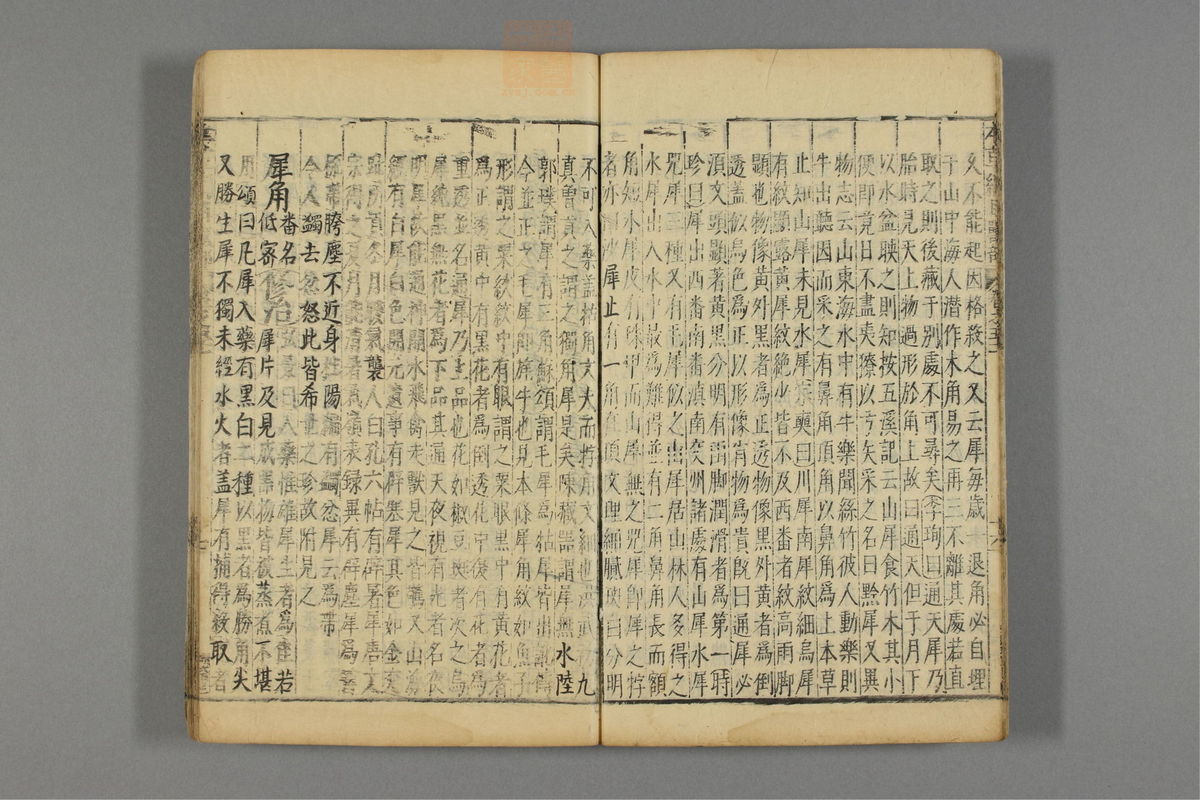 久不能起因格殺之又云犀每歲一退角必自埋
于山中海人潛作木角易之再三不離其處若直
取之則後藏于別處不可尋矣李珣曰通天犀乃
胎時見天上物過形於角上故曰通天但于月下
以水盆映之則知按五溪記云山犀食竹木其小
便即竟日不盡夷獠以弓矢采之名曰黔犀又異
物志云山東海水中有牛樂聞絲竹彼人動樂則
牛出聽因而采之有鼻角頂角以鼻角為上本草
止知山犀未見水犀宗奭曰川犀南犀紋細烏犀
有紋顯露黃犀紋絕少皆不及西番者紋高雨脚
顯也物像黃外黑者為正透物像黑外黃者為倒
透蓋以烏色為正以形像肖物為貴既曰通犀必
須文頭顯著黃黑分明有雨脚潤滑者為第一時
珍曰犀出西番南番滇南交州諸處有山犀水犀
兕犀三種又有毛犀似之山犀居山林人多得之
水犀出入水中最為難得並有二角鼻角長而額
角短水犀皮有珠甲而山犀無之兕犀即犀之牸
者亦曰沙犀止有一角在頂文理細膩斑白分明
不可入藥蓋牯角文大而牸角文細也
真曾貢之謂之獨角犀是矣陳藏器謂犀無水陸
郭璞謂犀有三角蘇頌謂毛犀為牯犀皆出訛傳
今並正之毛犀即旄牛也見本條犀角紋如魚子
形謂之粟紋紋中有眼謂之粟眼黑中有黃花者
為正透黃中有黑花者為倒透花中復有花者為
重透並名通犀乃上品也花如椒豆斑者次之烏
犀純黑無花者為下品其通天夜視有光者名夜
明犀故能通神開水飛禽走獸見之皆驚又山
經有白犀白色開元遺事有辟寒犀其色如金交
趾所貢冬月暖氣襲人白孔六帖有辟暑犀唐文
宗得之夏月能清暑氣嶺表錄異有辟塵犀為
簪梳帶胯塵不近身杜陽編有蠲忿犀云為帶
令人蠲去忿怒此皆希世之珍故附見之
犀角番名低密修治弘景曰入藥惟雄犀生者為佳若
犀片及見成器物皆被蒸煮不堪
用頌曰凡犀入藥有黑白二種以黑者為勝角尖
又勝生犀不獨未經水火者蓋犀有捕得殺取者